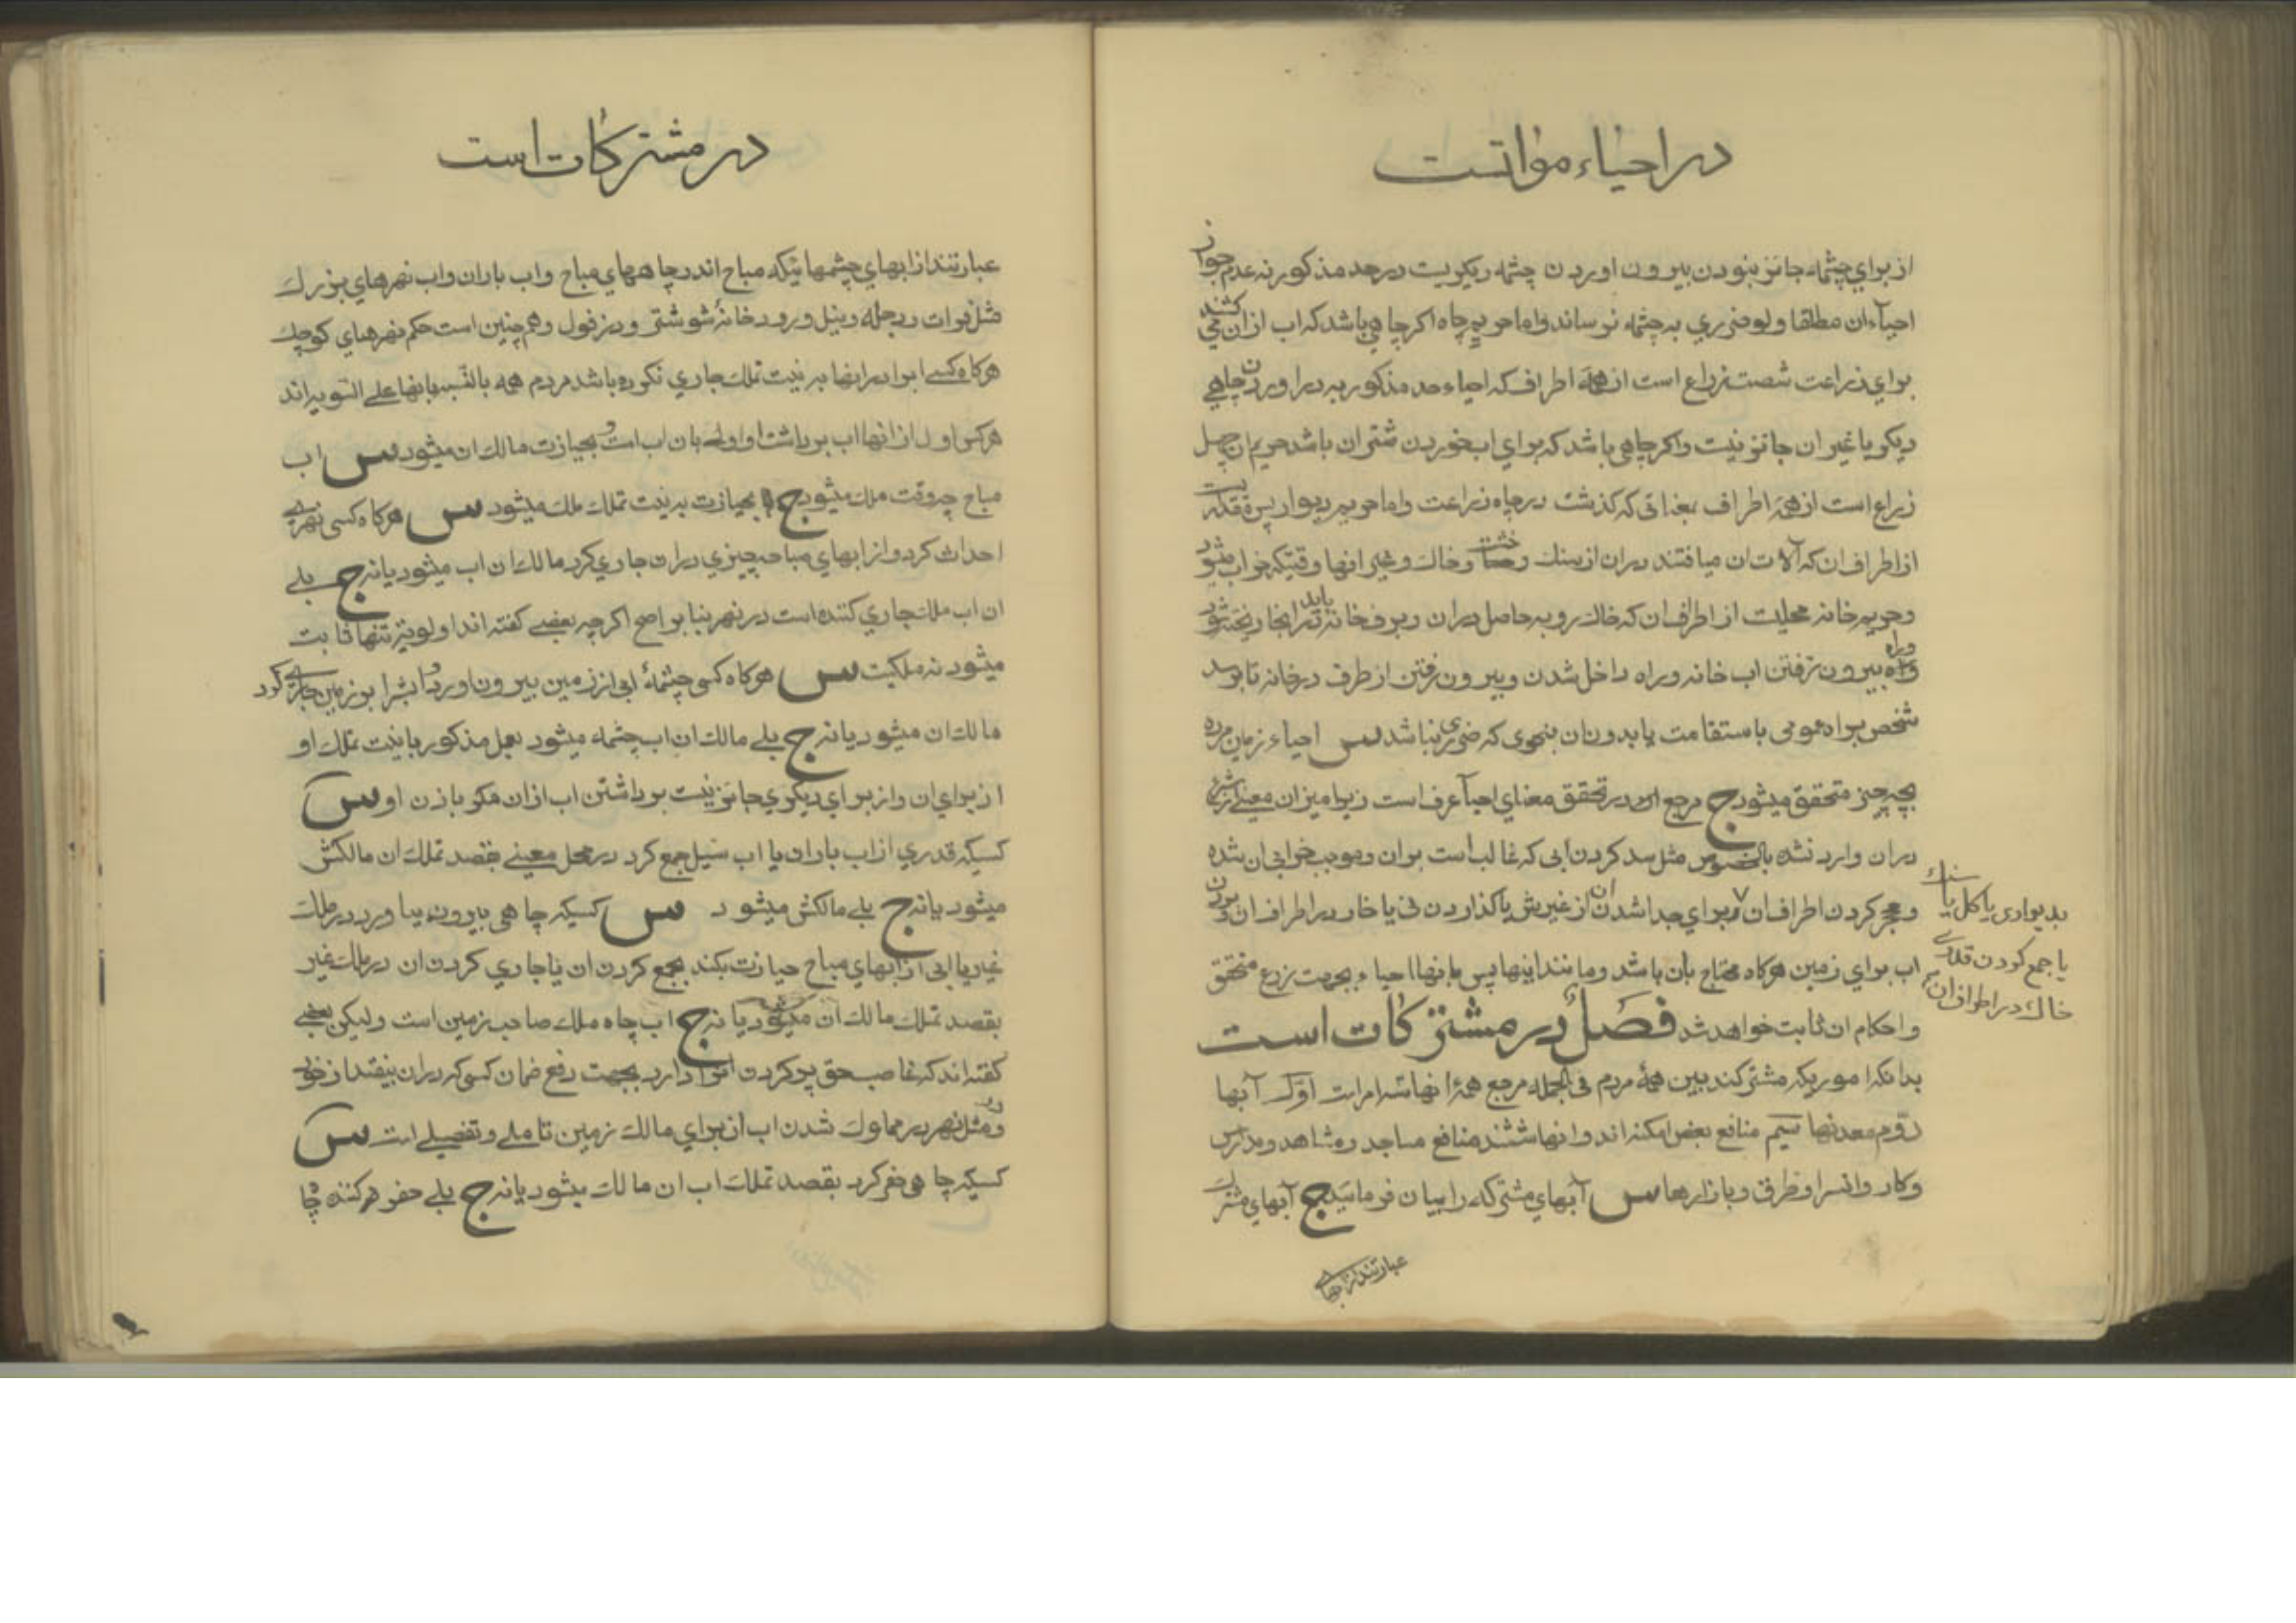 در احیاء مواتست
از برای چشمه جائز نبودن بیرون اوردن چشمه دیگریست در حد مذکور نه عدم جواز
احیآء ان مطلقا ولو ضرری به چشمه نرساند واما حریم چاه اکر چاهی باشد که اب از ان می کشند
برای زراعت شصت زراع است از همه اطراف که احیاء حد مذکور به در اوردن چاهی
دیکر یا غیر ان جائز نیست واکر چاهی باشد که برای اب خوردن شتران باشد حریم ان چهل
زراع است از همه اطراف بمعنائی که کذشت در چاه زراعت واما حریم دیوار پس قدریست
از اطراف ان که آلات ان میافتند در ان از سنك و خشت وخاك وغیر انها وقتیکه خراب میشود
وحریم خانه محلیت از اطراف ان که خاك روبه حاصل در ان وبرف خانه باید در انجا ریخته شود
وراه بیرون رفتن اب خانه وراه داخل شدن وبیرون رفتن از طرف در خانه تا برسد
شخص براه عمومی باستقامت یا بدون ان بنحوی که ضرری نباشد س احیاء زمین مرده
بچه چیز متحقق میشود ج مرجع در تحقق معنای احیآ عرف است زیرا میزان معینی از شرع
در ان وارد نشده بالخصوص مثل سد کردن ابی که غالب است بر ان وموجب خرابی ان شده
وحجر کردن اطراف ان برای جدا شدن ان از غیرش یا کذاردن نی یا خار در اطراف ان وبردن
بدیواری یا کل یا سنك
یا جمع کردن قدری
خاك در اطراف ان
اب برای زمین هرکاه محتاج بان باشد ومانند اینها پس بانها احیاء بجهت زرع متحقق
واحکام ان ثابت خواهد شد فصل در مشترکات است
بدانکه اموریکه مشترکند بین همهٔ مردم فی الجمله مرجع همهٔ انها سه امر است اوّل آبها
دوم معدنها سیم منافع بعض امکنه اند وانها ششند منافع مساجد ومشاهد ومدارس
وکاروانسرا وطرق وبازارها س آبهای مشترکه را بیان فرمائید ج آبهای مشترك
عبارتند از ابهای
در مشترکات است
عبارتند از ابهای چشمهائیکه مباح اند وچاههای مباح واب باران واب نهرهای بزرك
مثل فرات ودجله ونیل ورودخانهٔ شوشتر ودزفول وهم چنین است حکم نهرهای کوچك
هرکاه کسی ابرا در انها به نیت تملك جاری نکرده باشد مردم همه بالنّسبه بانها علی السّویه اند
هر کس اول از انها اب برداشت او اولی بان اب است وبحیازت مالك ان میشود س اب
مباح چه وقت ملك میشود ج بحیازت به نیت تملك ملك میشود س هرکاه کسی نهری
احداث کرد واز ابهای مباحه چیزی در ان جاری کرد مالك ان اب میشود یا نه ج بلی
ان اب ملك جاری کننده است در نهر بنا بر اصح اکرچه بعضی کفته اند اولویّة تنها ثابت
میشود نه ملکیت س هرکاه کسی چشمهٔ ابی از زمین بیرون اورد وابش را بر زمین جاری کرد
مالك ان میشود یا نه ج بلی مالك ان اب چشمه میشود بعمل مذکور با نیت تملك او
از برای ان واز برای دیکری جائز نیست برداشتن اب از ان مکر باذن او س
کسیکه قدری از اب باران یا اب سیل جمع کرد در محل معینی بقصد تملك ان مالکش
میشود یا نه ج بلی مالکش میشود س کسیکه چاهی بیرون بیاورد در ملك
غیر یا ابی از ابهای مباح حیازت بکند بجمع کردن ان یا جاری کردن ان در ملك غیر
بقصد تملك مالك ان میشود یا نه ج اب چاه ملك صاحب زمین است ولیکن بعضی
کفته اند که غاصب حق پر کردن دارد بجهت رفع ضمان کسی که در ان بیفتد از خود
ودر مثل نهر در مملوك شدن اب از برای مالك زمین تاملی وتفصیلی است س
کسیکه چاهی حفر کرد بقصد تملك اب ان مالك میشود یا نه ج بلی حفر کننده چا